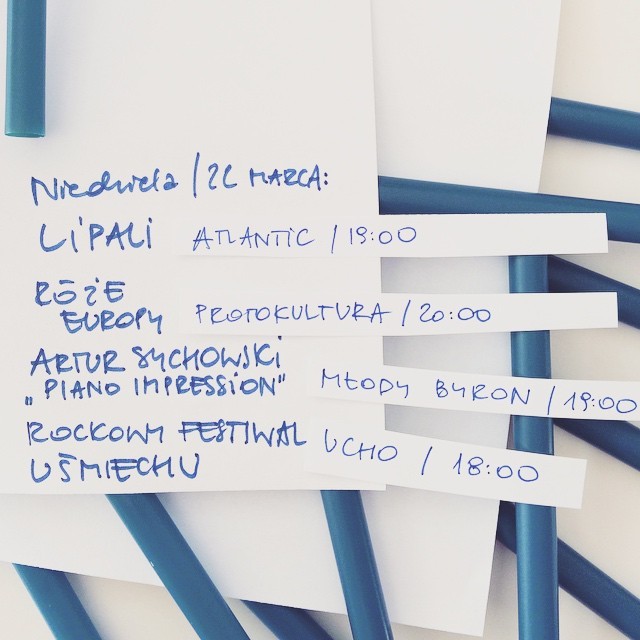 Niedziela / 22 MARCA:
LIPALI ATLANTIC / 19:00
RÓŻE
EUROPY PROTOKULTURA / 20:00
ARTUR SYCHOWSKI
„PIANO IMPRESSION" MŁODY BYRON / 19:00
ROCKOWY FESTIWAL UCHO / 18:00
UŚMIECHU